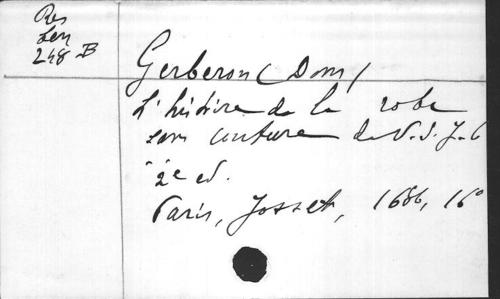 Res
Len
248 B
Gerberon (Dom)
L'histoire de la robe
sans couture de N. S. J.-C
2e ed.
Paris, Josset, 1686, 16°